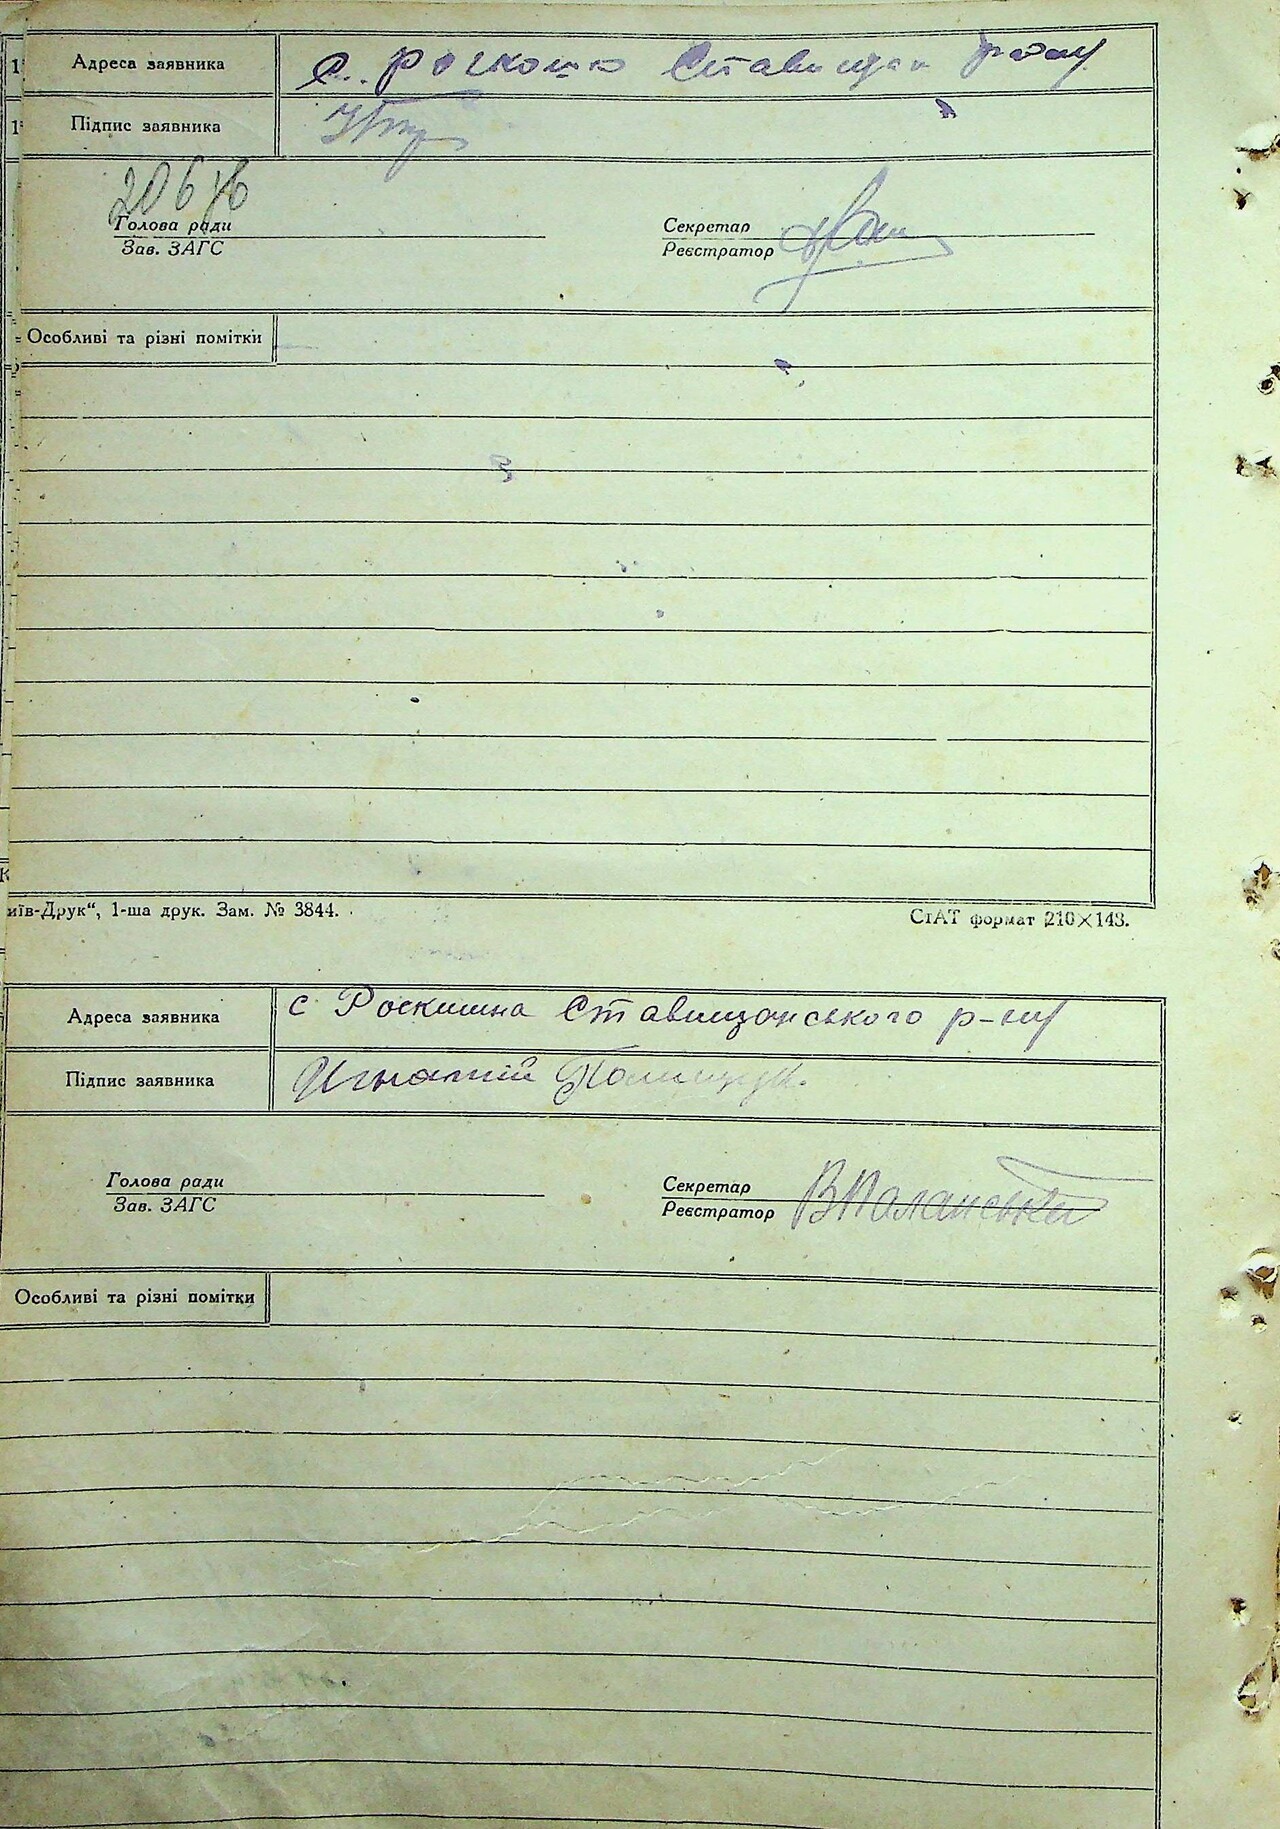 Адреса заявника с. Роскошю Ставищан р-ону
Підпис заявника
Голова ради Секретар
Зав. ЗАГС Реєстратор
Особливі та різні помітки
иїв-Друк“, 1-ша друк. Зам. № 3844. СтАТ формат 210×143.
Адреса заявника с Роскишна Ставищанського р-ну
Підпис заявника Игнатий Полищук.
Голова ради Секретар
Зав. ЗАГС Реєстратор
Особливі та різні помітки